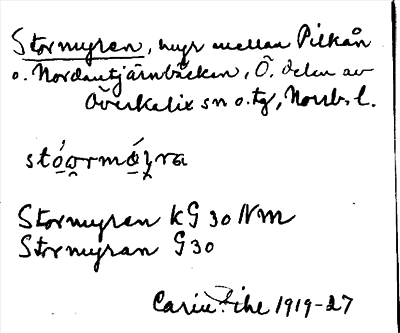 Stormyran, myr mellan Pilkån
o. Nordautjärnbäcken, Ö. delen av
Överkalix sn o. tg, Norrb. l.
Stormyran KG 30 NM
Stormyran G 30
Carin Pihl 1919-27